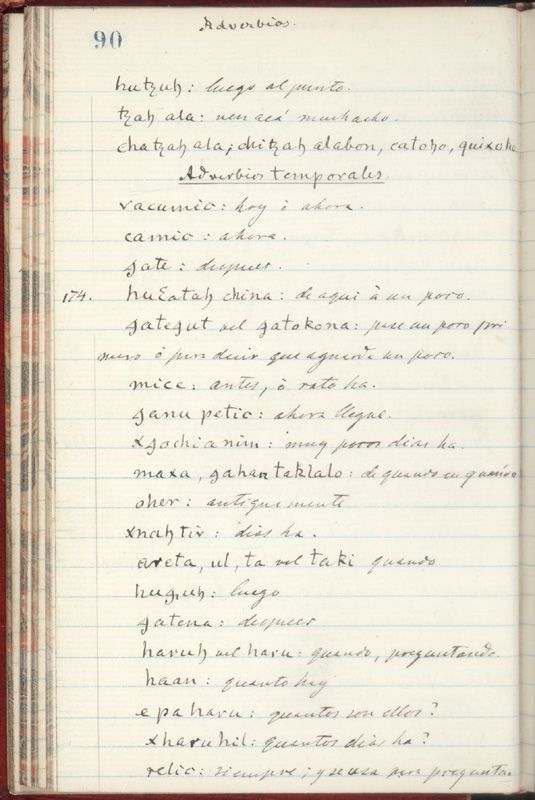 90
Adverbios.
hutzuh: luego al punto.
tzah ala: ven acá muchacho.
chatzah ala; chitzah alabon, catoho, quixoho
Adverbios temporales.
vacumic: hoy ò ahora.
camic: ahora.
gate: despues.
174. huEatah china: de aqui à un poco.
gategut vel gatokona: pase un poco pri
mero ò para decir que aguarde un poco.
mice: antes, ò rato ha.
ganu petic: ahora llegue.
xgochianim: muy pocos dias ha.
maxa, gahan taklalo: de quando en quando
oher: antiguamente
xnahtir: dias ha.
areta, ul, ta vel taki quando
huguh: luego
gatena: despues
haruh vel haru: quando, preguntando.
haan: quanto hay
epaharu: quantos son ellos?
xharuhil: quantos dias ha?
relic: siempre; y se usa para preguntar